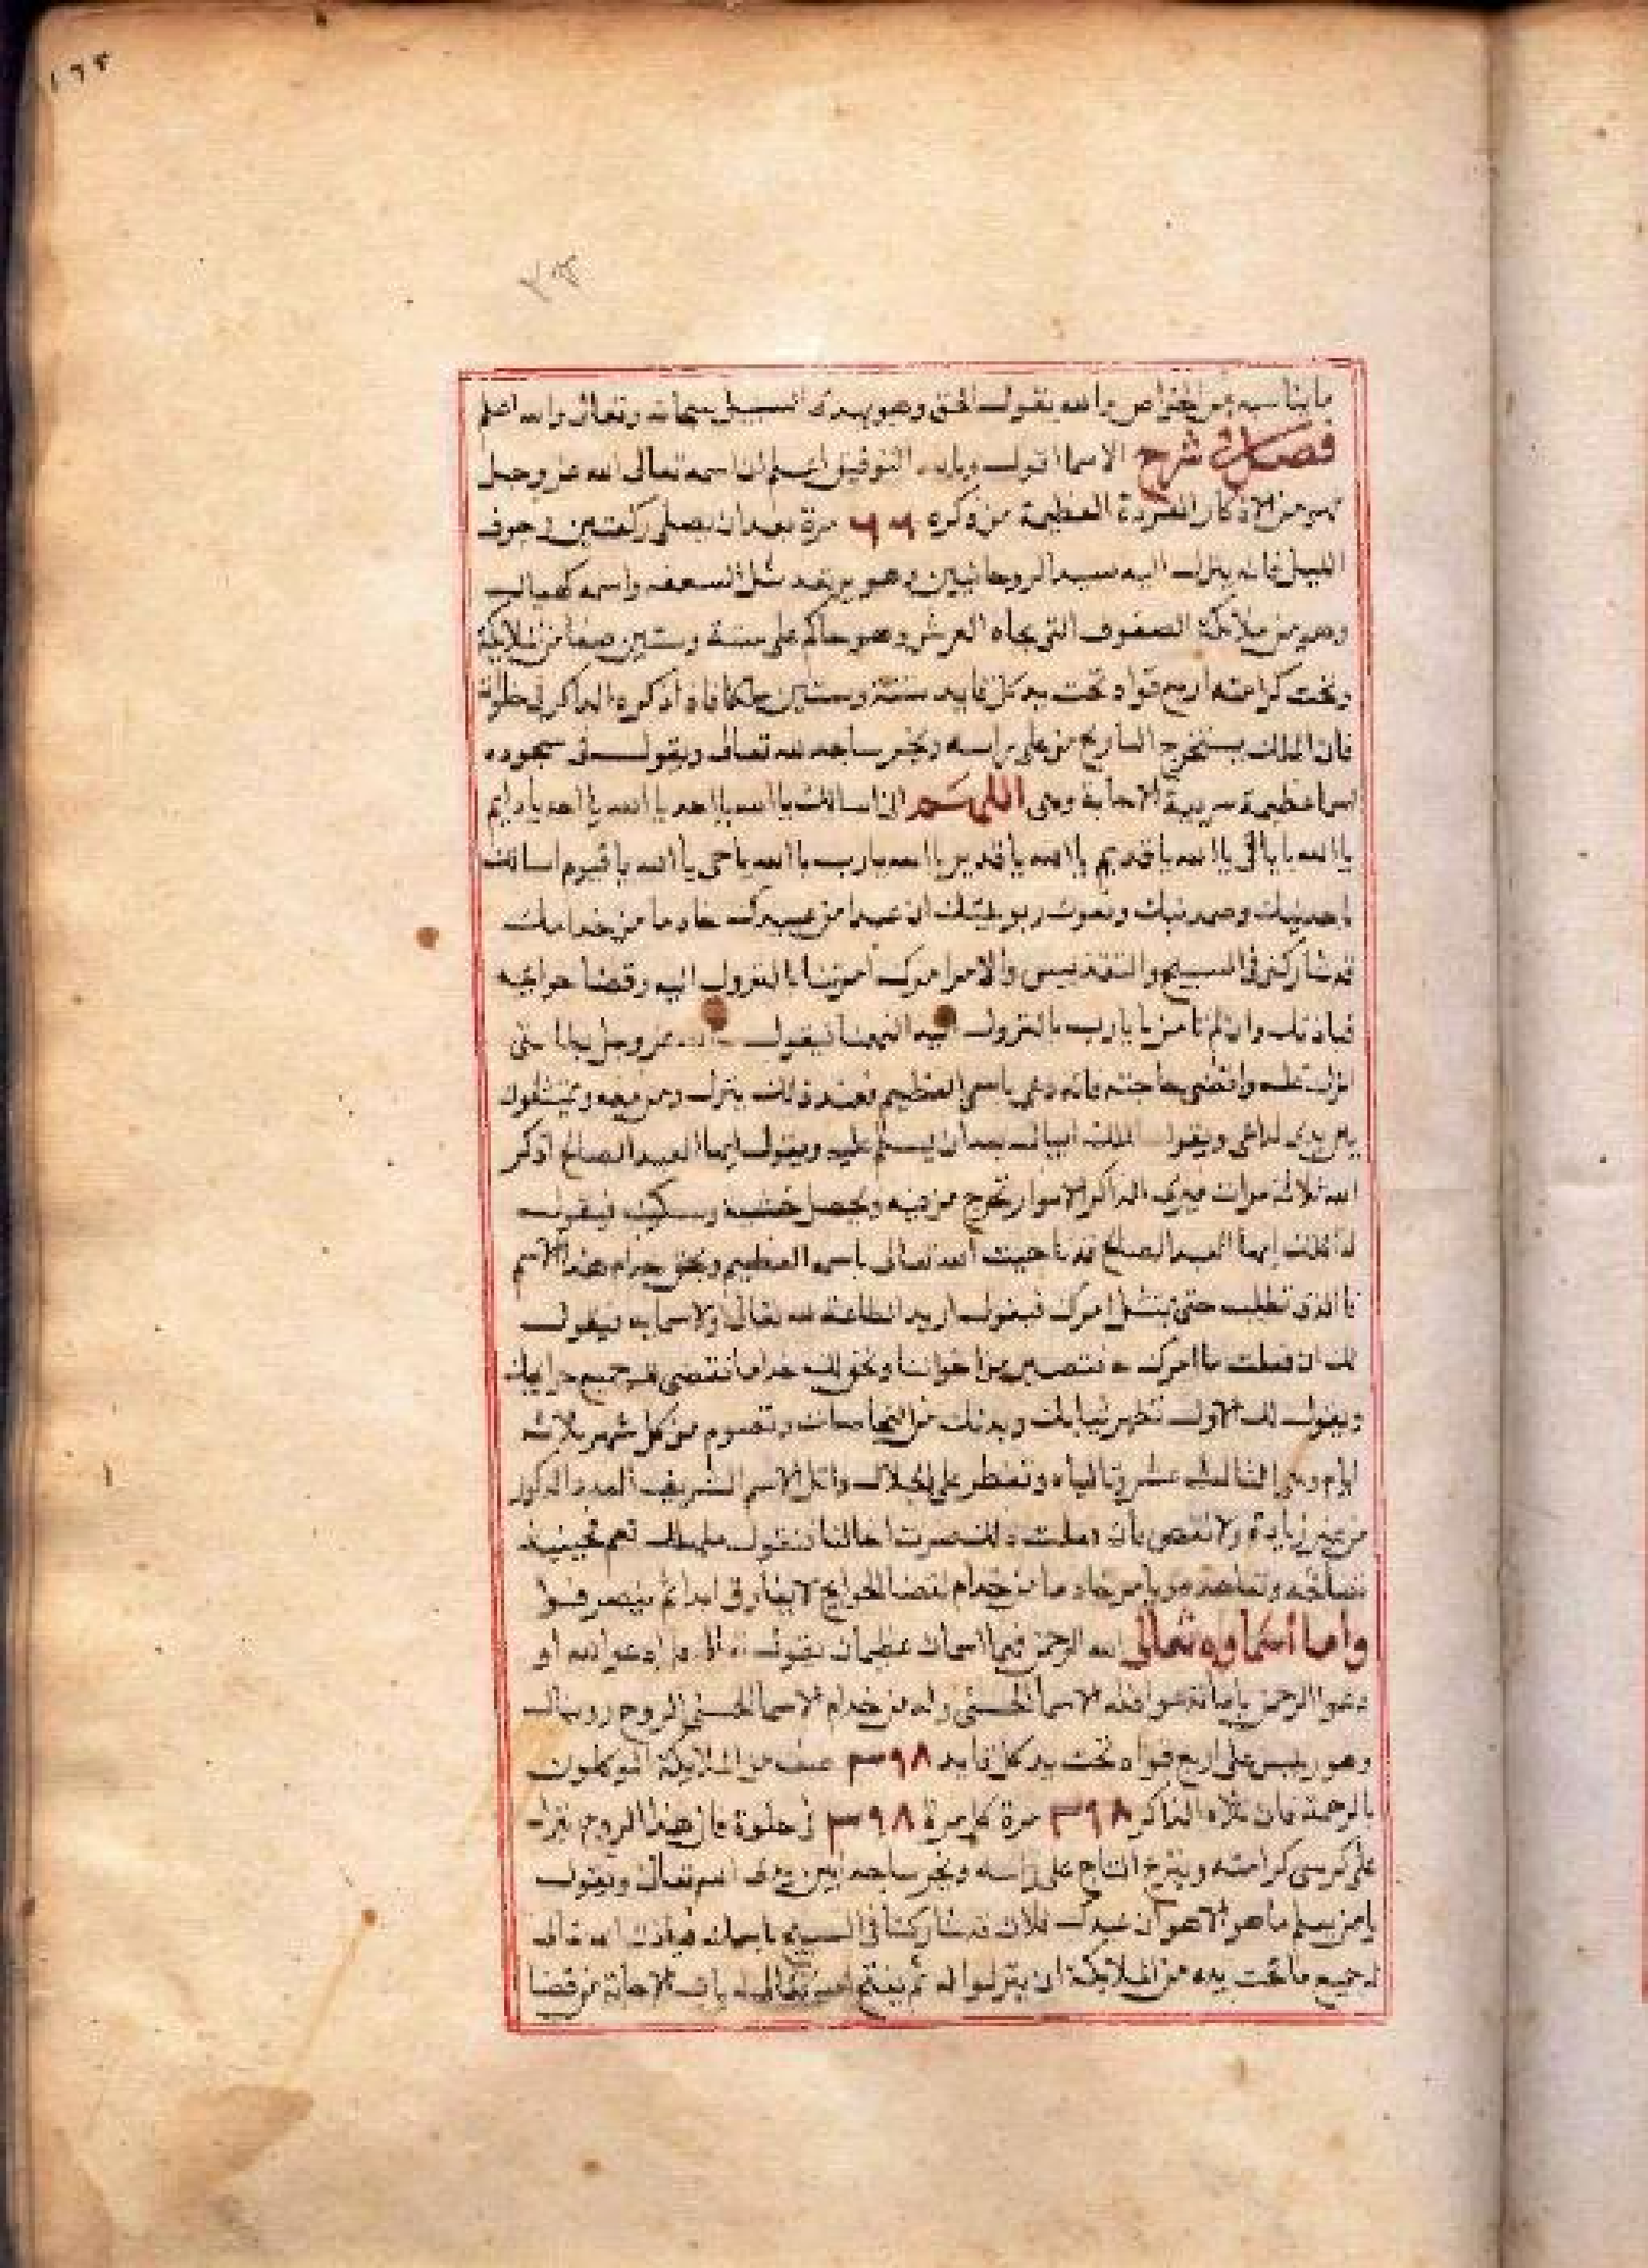 ١٦٣
ما يناسبه من الخواص والله يقول الحق وهو يهدى السبيل سبحانه وتعالى والله اعلم
فصل فى شرح الاسما اقول وبالله التوفيق اعلم ان اسمه تعالى الله عز وجل
هو من الاذكار المفردة العظيمة من ذكره ٦٦ مرة بعد ان يصلى ركعتين فى جوف
الليل فانه ينزل اليه سيد الروحانيين وهو يرتعد مثل السعفه واسمه كهيال
وهو من ملائكة الصفوف التى تجاه العرش وهو حاكم على ستة وستين صفا من الملائكة
وتحت كرامته اربع قواد تحت يد كل قايد ستة وستين ملكا فاذا ذكره الذاكر فى خلوة
فان الملك يستخرج التاج من على راسه ويخر ساجد لله تعالى ويقول فى سجوده
اسما عظيمة سريعة الاجابة وهى اللهم انى اسالك يا الله يا احد يا الله يا احد يا دايم
يا الله يا باقى يا الله يا قديم يا الله يا قدير يا الله يا رب يا الله يا حى يا الله يا قيوم اسالك
باحديتك وصمدنيتك ونعوت ربوبيتك ان عبدا من عبيدك خادما من خدامك
قد شاركنى فى التسبيح والتقديس والامر امرك امرتنا بالنزول اليه وقضا حوايجه
فباذنك وان لم تامرنا يا رب بالنزول اليه فيقول الله عز وجل يا ملائكتى
انزل عليه واقضى حاجته فانه دعى باسمى العظيم فعند ذلك ينزل وهم معه ويمتثلون
بين يدى الداعى ويقول الملك كهيال بعد ان يسلم عليه ويقول ايها العبد الصالح اذكر
الله ثلاث مرات فيرى الذاكر الانوار تخرج من فيه ويحصل خشية وسكينه فيقول
له الملك ايها العبد الصالح قد ناجيت الله تعالى باسمه العظيم ونحن خدام هذا الاسم
ما الذى تطلب حتى نمتثل امرك فيقول اريد الطاعة لله تعالى ولاسمايه فيقول
لك ان فعلت ما امرك به فتصير من اخواننا ونحن لك خداما نقضى لك جميع حوايجك
ويقول لك الاول تطهر ثيابك وبدنك من النجاسات وتصوم من كل شهر ثلاثة
ايام وهى الثالث عشر وتالياه وتفطر على الحلال واتل الاسم الشريف العدد المذكور
من غير زيادة ولا نقص فان فعلت ذلك صرت اخا لنا فتقول نعم
فتصافحه وتعاهده ويامر خادما من خدامه لقضا الحوايج لا يفارقك ابدا ثم ينصرفوا
واما اسماؤه تعالى الله الرحمن فهما اسمان عظيمان يقول الله تعالى قل ادعوا الله او
ادعوا الرحمن ايا ما تدعوا فله الاسما الحسنى وله من خدام الاسما الحسنى الروح روبيال
وهو رييس على اربع قواد تحت يد كل قايد ٢٩٨ صف من الملائكة الموكلون
بالرحمة فان تلاه الذاكر ٢٩٨ مرة كل مرة ٢٩٨ فى خلوة فان هذا الروح ينزل
على كرسى كرامته وينزع التاج على راسه ويخر ساجدا بين يدى الله تعالى ويقول
يا من يعلم ما هو الا هو ان عبدك فلان قد شاركنا فى التسبيح باسمك فياذن الله تعالى
لجميع ما تحت يده من الملائكة ان ينزلوا له ثم يفتح الله تعالى له باب الاجابة من قضا